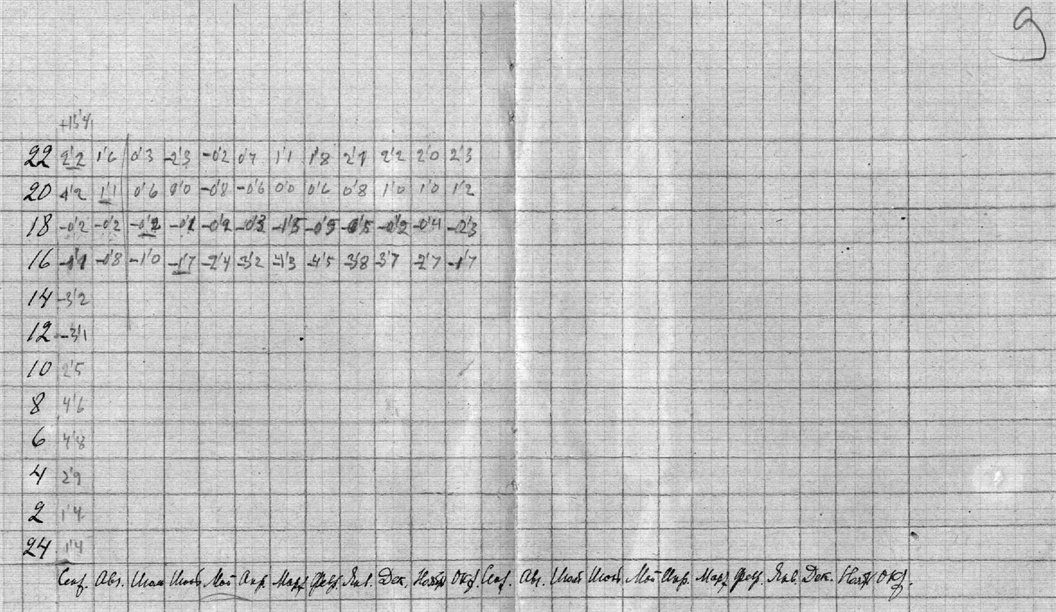 9
+13'4
22 2'2 1'6 0'3 -2'3 -0'2 0'7 1'1 1'8 2'7 2'2 2'0 2'3
20 4'2 1'1 0'6 0'0 -0'8 -0'6 0'0 0'6 0'8 1'0 1'0 1'2
18 -0'2 -0'2 -0'2 -0'9 -0'3 -1'5 -0'5 -0'2 -0'4 -0'3
16 -0'8 -1'0 -1'7 -2'4 -3'2 -4'3 -4'5 -3'8 -3'7 -2'7 -1'7
14 -3'2
12 -3'1
10 2'5
8 4'6
6 4'8
4 2'9
2 1'4
24 1'4
Сент. Авг. Июль Июнь Май Апр. Март Фев. Янв. Дек. Нояб. Окт. Сент. Авг. Июль Июнь Май Апр. Март Фев. Янв. Дек. Нояб. Окт.